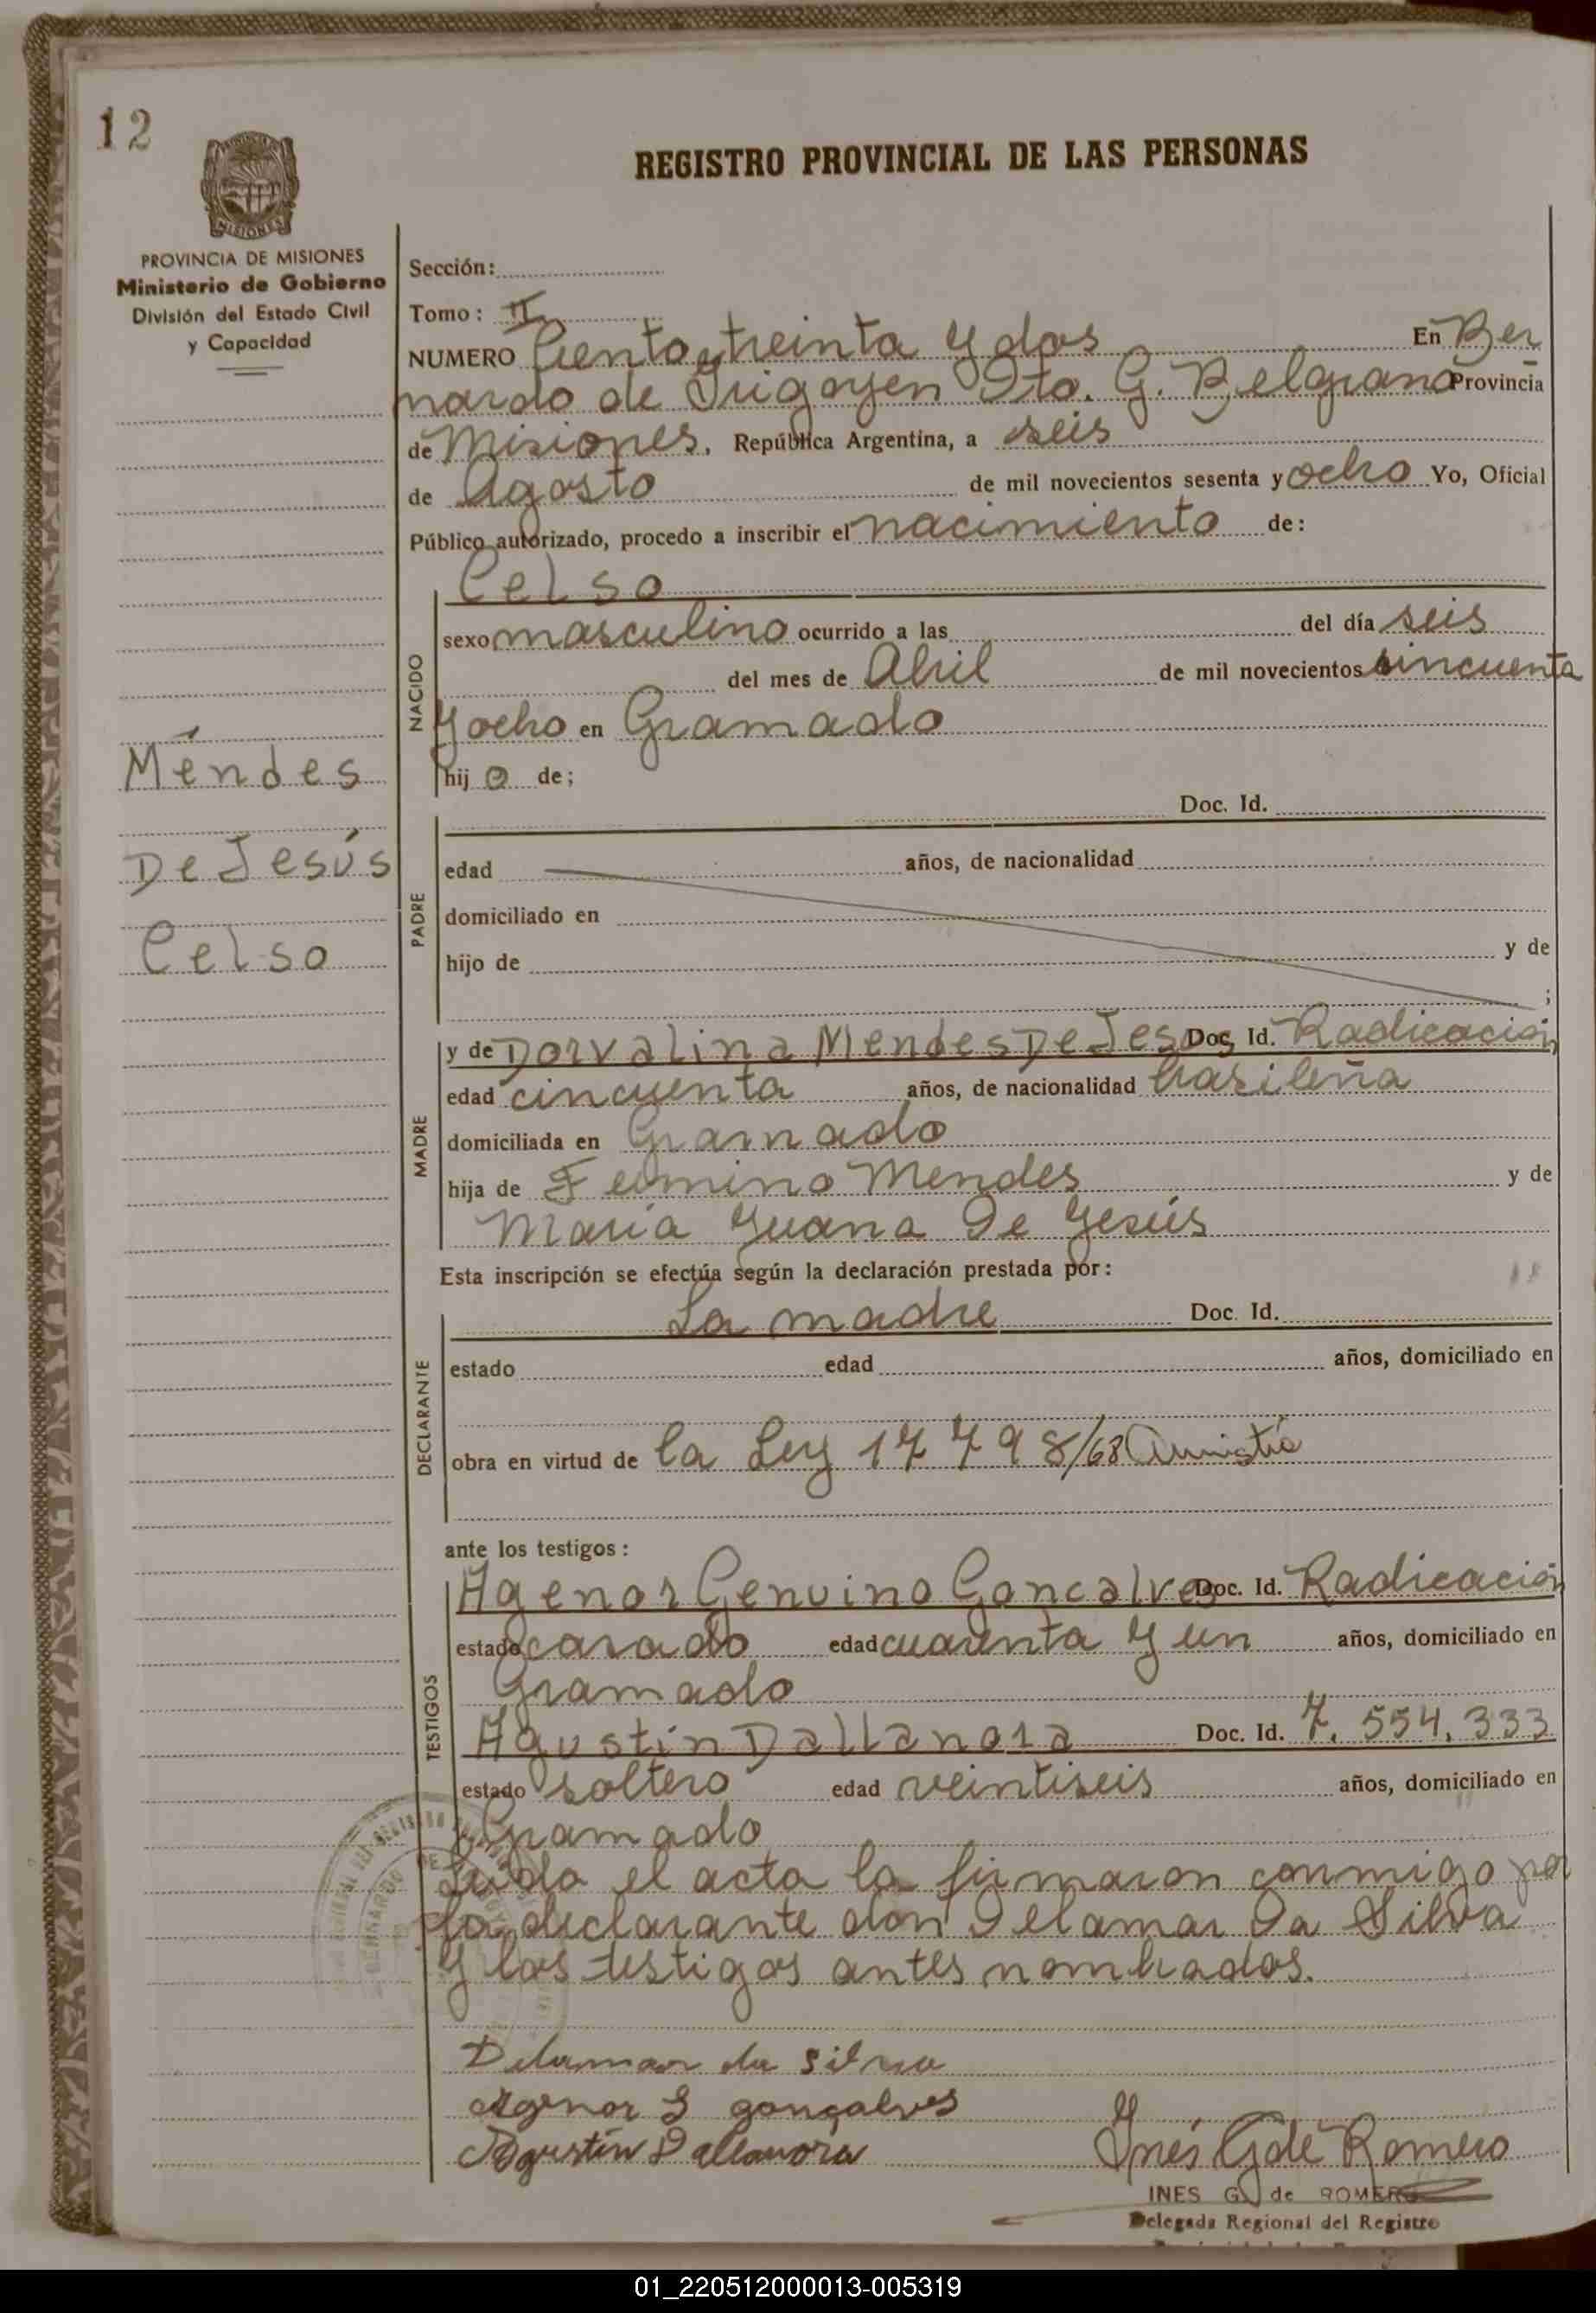 12
REGISTRO PROVINCIAL DE LAS PERSONAS
MISIONES
PROVINCIA DE MISIONES
Ministerio de Gobierno
División del Estado Civil
y Capacidad
Sección:
Tomo: II
NUMERO Ciento treinta y dos En Ber
nardo de Irigoyen Dto. G. Belgrano Provincia
de Misiones, República Argentina, a seis
de Agosto de mil novecientos sesenta y ocho Yo, Oficial
Público autorizado, procedo a inscribir el nacimiento de:
Celso
NACIDO
sexo masculino ocurrido a las del día seis
del mes de Abril de mil novecientos cincuenta
y ocho en Gramado
hij o de;
Méndes
De Jesús
Celso
PADRE
Doc. Id.
edad años, de nacionalidad
domiciliado en
hijo de y de
;
MADRE
y de Dorvalina Mendes De Jesus Doc. Id. Radicación
edad cincuenta años, de nacionalidad brasileña
domiciliada en Gramado
hija de Fermino Mendes y de
María Juana De Jesús
Esta inscripción se efectúa según la declaración prestada por:
DECLARANTE
La madre Doc. Id.
estado edad años, domiciliado en
obra en virtud de la Ley 17798/68 Amnistía
ante los testigos:
TESTIGOS
Agenor Genuino Goncalves Doc. Id. Radicación
estado casado edad cuarenta y un años, domiciliado en
Gramado
Agustín Dallanora Doc. Id. 7.554.333
estado soltero edad veintiseis años, domiciliado en
Gramado
Leida el acta la firmaron conmigo por
la declarante don Delamar Da Silva
y los testigos antes nombrados.
Delamar da Silva
Agenor G gonçalves
Agustín Dallanora
Inés G de Romero
INES G. de ROMERO
Delegada Regional del Registro
01_220512000013-005319